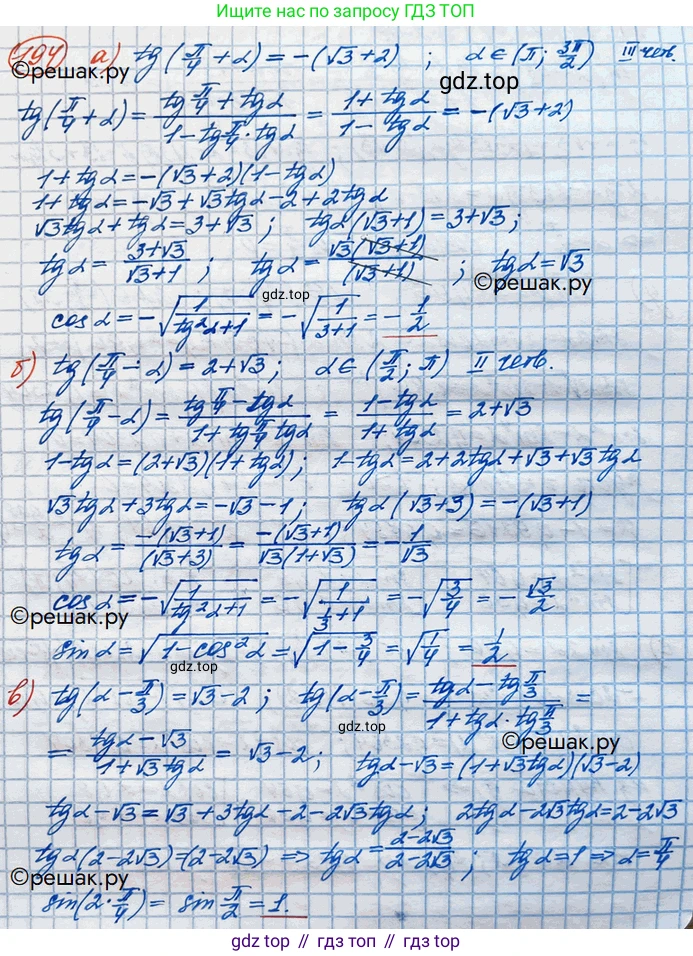 Больше решений в приложении GDZ TOP
194) а) tg(π/4 + α) = -(√3+2) ; α ∈ (π; 3π/2) III чет.
©решак.ру
gdz.top
tg(π/4 + α) = (tg π/4 + tg α)/(1 - tg π/4 · tg α) = (1 + tg α)/(1 - tg α) = -(√3+2)
1 + tg α = -(√3+2)(1 - tg α)
1 + tg α = -√3 + √3 tg α - 2 + 2 tg α
√3 tg α + tg α = 3 + √3 ; tg α (√3+1) = 3 + √3 ;
tg α = (3+√3)/(√3+1) ; tg α = √3(√3+1)/(√3+1) ; tg α = √3
©решак.ру
gdz.top
cos α = -√(1/(tg²α+1)) = -√(1/(3+1)) = -1/2
б) tg(π/4 - α) = 2+√3 ; α ∈ (π/2; π) II четв.
tg(π/4 - α) = (tg π/4 - tg α)/(1 + tg π/4 tg α) = (1 - tg α)/(1 + tg α) = 2+√3
1 - tg α = (2+√3)(1 + tg α) ; 1 - tg α = 2 + 2tg α + √3 + √3 tg α
√3 tg α + 3 tg α = -√3 - 1 ; tg α (√3+3) = -(√3+1)
tg α = -(√3+1)/(√3+3) = -(√3+1)/(√3(1+√3)) = -1/√3
cos α = -√(1/(tg²α+1)) = -√(1/(1/3+1)) = -√(3/4) = -√3/2
©решак.ру
sin α = √(1 - cos²α) = √(1 - 3/4) = √(1/4) = 1/2
gdz.top
в) tg(α - π/3) = √3 - 2 ; tg(α - π/3) = (tg α - tg π/3)/(1 + tg α · tg π/3) =
gdz.top
©решак.ру
= (tg α - √3)/(1 + √3 tg α) = √3 - 2 ; tg α - √3 = (1 + √3 tg α)(√3 - 2)
tg α - √3 = √3 + 3tg α - 2 - 2√3 tg α ; 2tg α - 2√3 tg α = 2 - 2√3
tg α (2 - 2√3) = (2 - 2√3) ⇒ tg α = (2-2√3)/(2-2√3) ; tg α = 1 ⇒ α = π/4
©решак.ру
sin(2 · π/4) = sin π/2 = 1.
gdz.top // гдз.топ // гдз.top